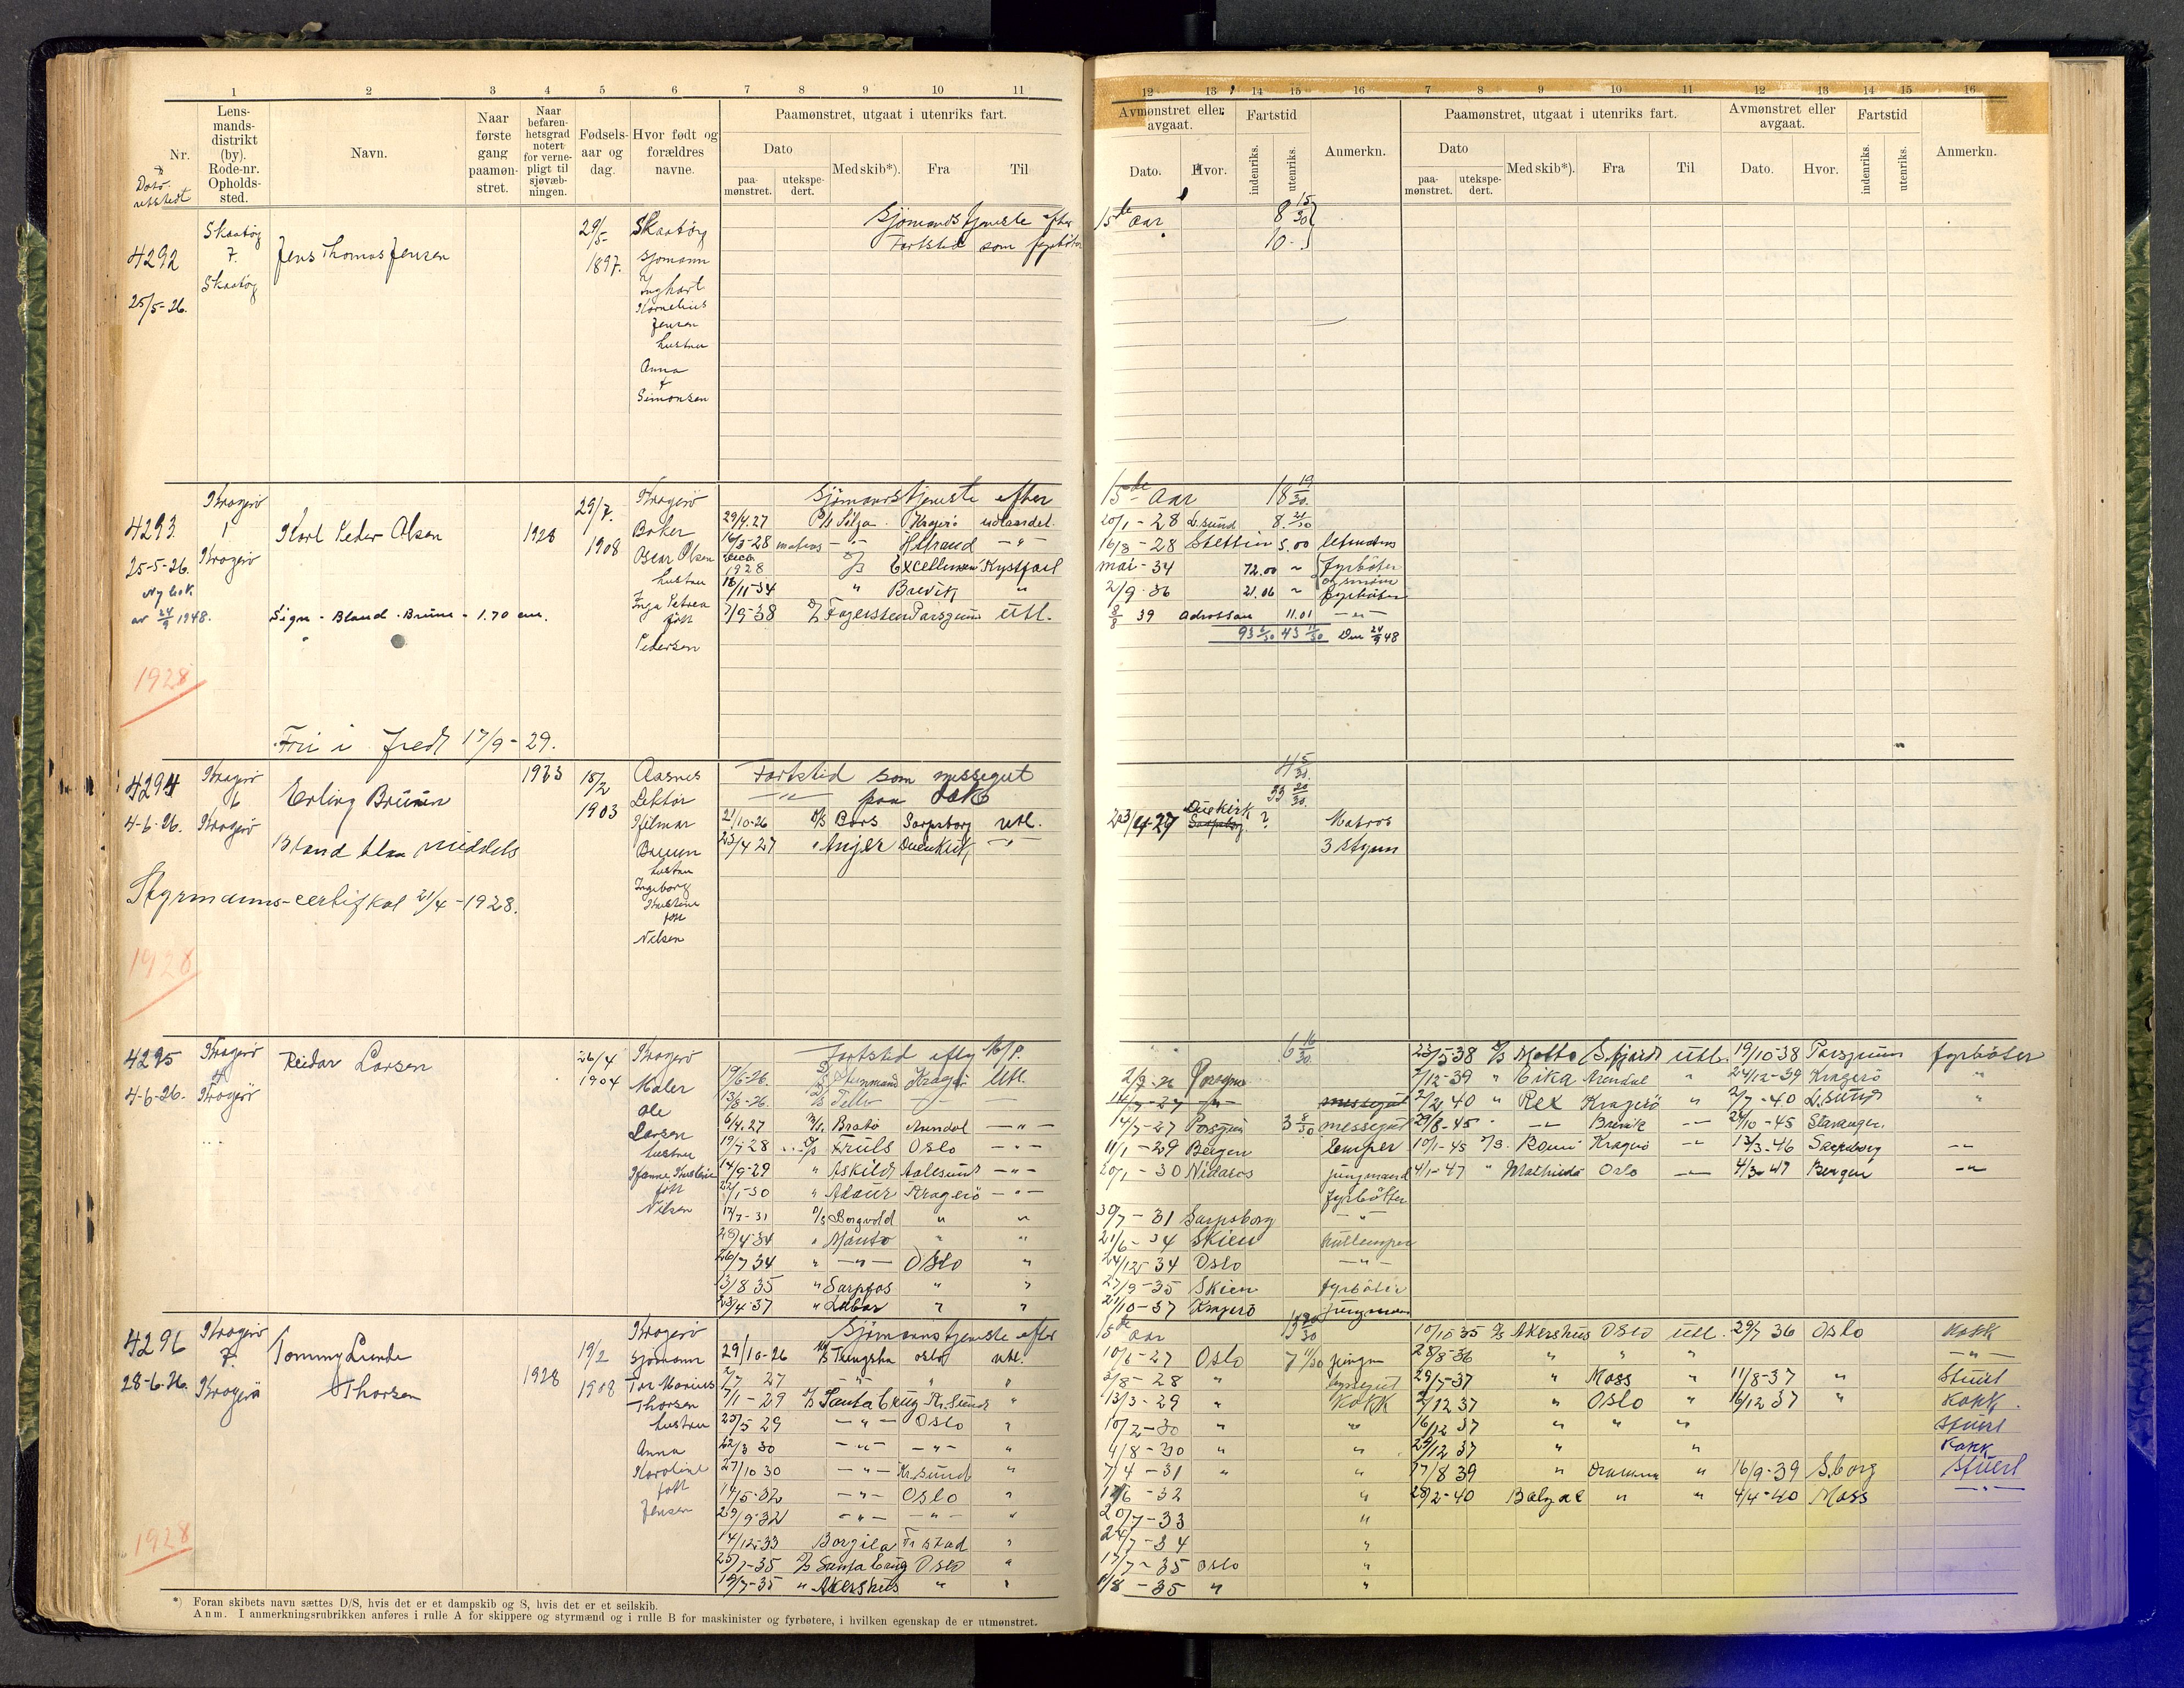 1 2 3 4 5 6 7 8 9 10 11
Nr.
& Dato utstedt
Lensmandsdistrikt (by). Rode-nr. Opholdssted.
Navn.
Naar første gang paamønstret.
Naar befarenhetsgrad notert for vernepligt til sjøvæbningen.
Fødselsaar og dag.
Hvor født og forældres navne.
Paamønstret, utgaat i utenriks fart.
Dato
paamønstret. utekspedert.
Med skib*). Fra Til
12 13 14 15 16 7 8 9 10 11 12 13 14 15 16
Avmønstret eller avgaat. Fartstid
Dato. Hvor. indenriks. utenriks. Anmerkn.
Paamønstret, utgaat i utenriks fart.
Dato
paamønstret. utekspedert. Med skib*). Fra Til
Avmønstret eller avgaat. Fartstid
Dato. Hvor. indenriks. utenriks. Anmerkn.
4292
25/5-26.
Skaatøy
7.
Skaatøy
Jens Thomas Jensen
29/5-
1897.
Skaatøy
sjømann
Kornelius
Jensen
hustru
Anna
f
Simonsen
Sjømandstjeneste efter 15de aar 8 15/30
Fartstid som fyrbøter 10-
4293.
25-5-26.
Ny bok
av 24/9 1948.
1928
Kragerø
1
Kragerø
Karl Peder Olsen
Sign - Bland - Brune - 1.70 cm.
Fri i fred 17/9-29.
1928
29/7.
1908
Kragerø
Baker
Oscar Olsen
hustru
Inga Petrea
født
Pedersen
Sjømannstjeneste efter 15de Aar 18 19/30.
29/4.27 Silja Kragerø utlandet. 20/1-28 L.sund 8. 21/30
16/3-28 matros - " - - " - 16/8-28 Stettin 5.00 letmatros
1928 D/S Excellensen Kystfart mai-34 72.00 ~ fyrbøter
18/11-34 " Brevik " 2/9-36 21.06 ~ fyrbøter
7/9-38 D/S Fagersten Porsgrunn Utl. 8/8 39 Adrossan 11.01 - " -
Den 24/9 48
4294
4-6-26.
1928
Kragerø
6
Kragerø
Erling Bruun
Bland blaa middels
Styrmanns-certifikat 21/4-1928.
1923
15/2
1903
Aasnes
Lektor
Hilmar
Bruun
hustru
Ingeborg
Kristine
født
Nilsen
Fartstid som messegut 4 5/30.
- " - paa dæk 33 20/30.
21/10-26 D/S Bors Sarpsborg utl. 23/4-27 Duekirk ? Matros
23/4 27 " Anjer Duenkirk - " - 3 styrm
4295
4-6-26.
Kragerø
4
Kragerø
Reidar Larsen
26/4
1904
Kragerø
Maler
Ole
Larsen
hustru
født
Nilsen
Fartstid 6 16/30
19/6-26. Kragerø Utl. 2/7-26 Porsgrun
13/8-26. D/S Tello
6/4.27 Bratø Arendal - " - 14/7-27 Porsgrun 3 8/30 messegut
19/7-28 D/S Truls Oslo - " - 11/1-29 Bergen lemper
14/9-29 " Askild Aalesund - " - 20/1-30 Nidaros jungmand
22/1-30 " Adour Kragerø - " - fyrbøter
17/7-31 D/S Borgvold " " 30/7-31 Sarpsborg - " -
28/4-34 " Manto " " 21/6-34 Skien kullemper
26/7 34 " - " - Oslo " 24/12-34 Oslo - " -
13/8 35 " Sarpfos " " 27/9-35 Skien fyrbøter
23/4-37 " Labor " " 21/10-37 Kragerø jungman
23/5-38 D/S Motto S.fjord Utl. 19/10-38 Porsgrunn fyrbøter
2/12-39 " Eika Arendal " 24/12-39 Kragerø "
2/2 40 " Rex Kragerø " 2/7-40 L.sund "
29/8-45 - " - Brevik - " - 24/10-45 Stavanger.
10/1-45 D/S. Romi Kragerø - " - 13/3-46 Sarpsborg - " -
4/1-47 " Mathilda Oslo - " - 4/3-47 Bergen - " -
4296
28-6-26.
1928
Kragerø
7.
Kragerø
Tommy Lunde
Thorsen
1928
19/2
1908
Kragerø
sjømann
Tor Marius
Thorsen
hustru
Anna
Karoline
født
Jensen
Sjømannstjeneste efter 15de aar
29/10-26 Oslo utl. 10/6-27 Oslo 7 11/30 jungm
2/7 27 - " - " " 3/8-28 "
7/1-29 D/S Santa Cruz Kr.sund " 13/3-29 " Kokk
23/5 29 - " - Oslo " 10/2-30 " "
22/3 30 - " - - " - " 4/8-30 " "
27/10 30 - " - Kr.sund " 7/4-31 " "
14/5-32 - " - Oslo " 12/6-32 "
29/9-32 - " - - " - " 20/7-33 "
14/12-33 Borgila Fr stad " 24/7-34 "
25/1-35 D/S Santa Cruz Oslo " 17/7-35 Oslo "
19/7-35 " Akershus " " 1/8-35 " "
10/10 35 D/S Akershus Oslo utl. 29/7 36 Oslo Kokk
28/8-36 " " " - " -
29/5-37 " Moss " 11/8-37 " Stuert
2/12 37 " Oslo " 16/12 37 " Kokk.
16/12 37 " " " Stuert
29/12 37 " " Kokk
17/8 39 " Drammen " 16/9-39 S.borg Stuert
28/2-40 Balzac " " 4/4-40 Moss - " -
*) Foran skibets navn sættes D/S, hvis det er et dampskib og S, hvis det er et seilskib.
Anm. I anmerkningsrubrikken anføres i rulle A for skippere og styrmænd og i rulle B for maskinister og fyrbøtere, i hvilken egenskap de er utmønstret.